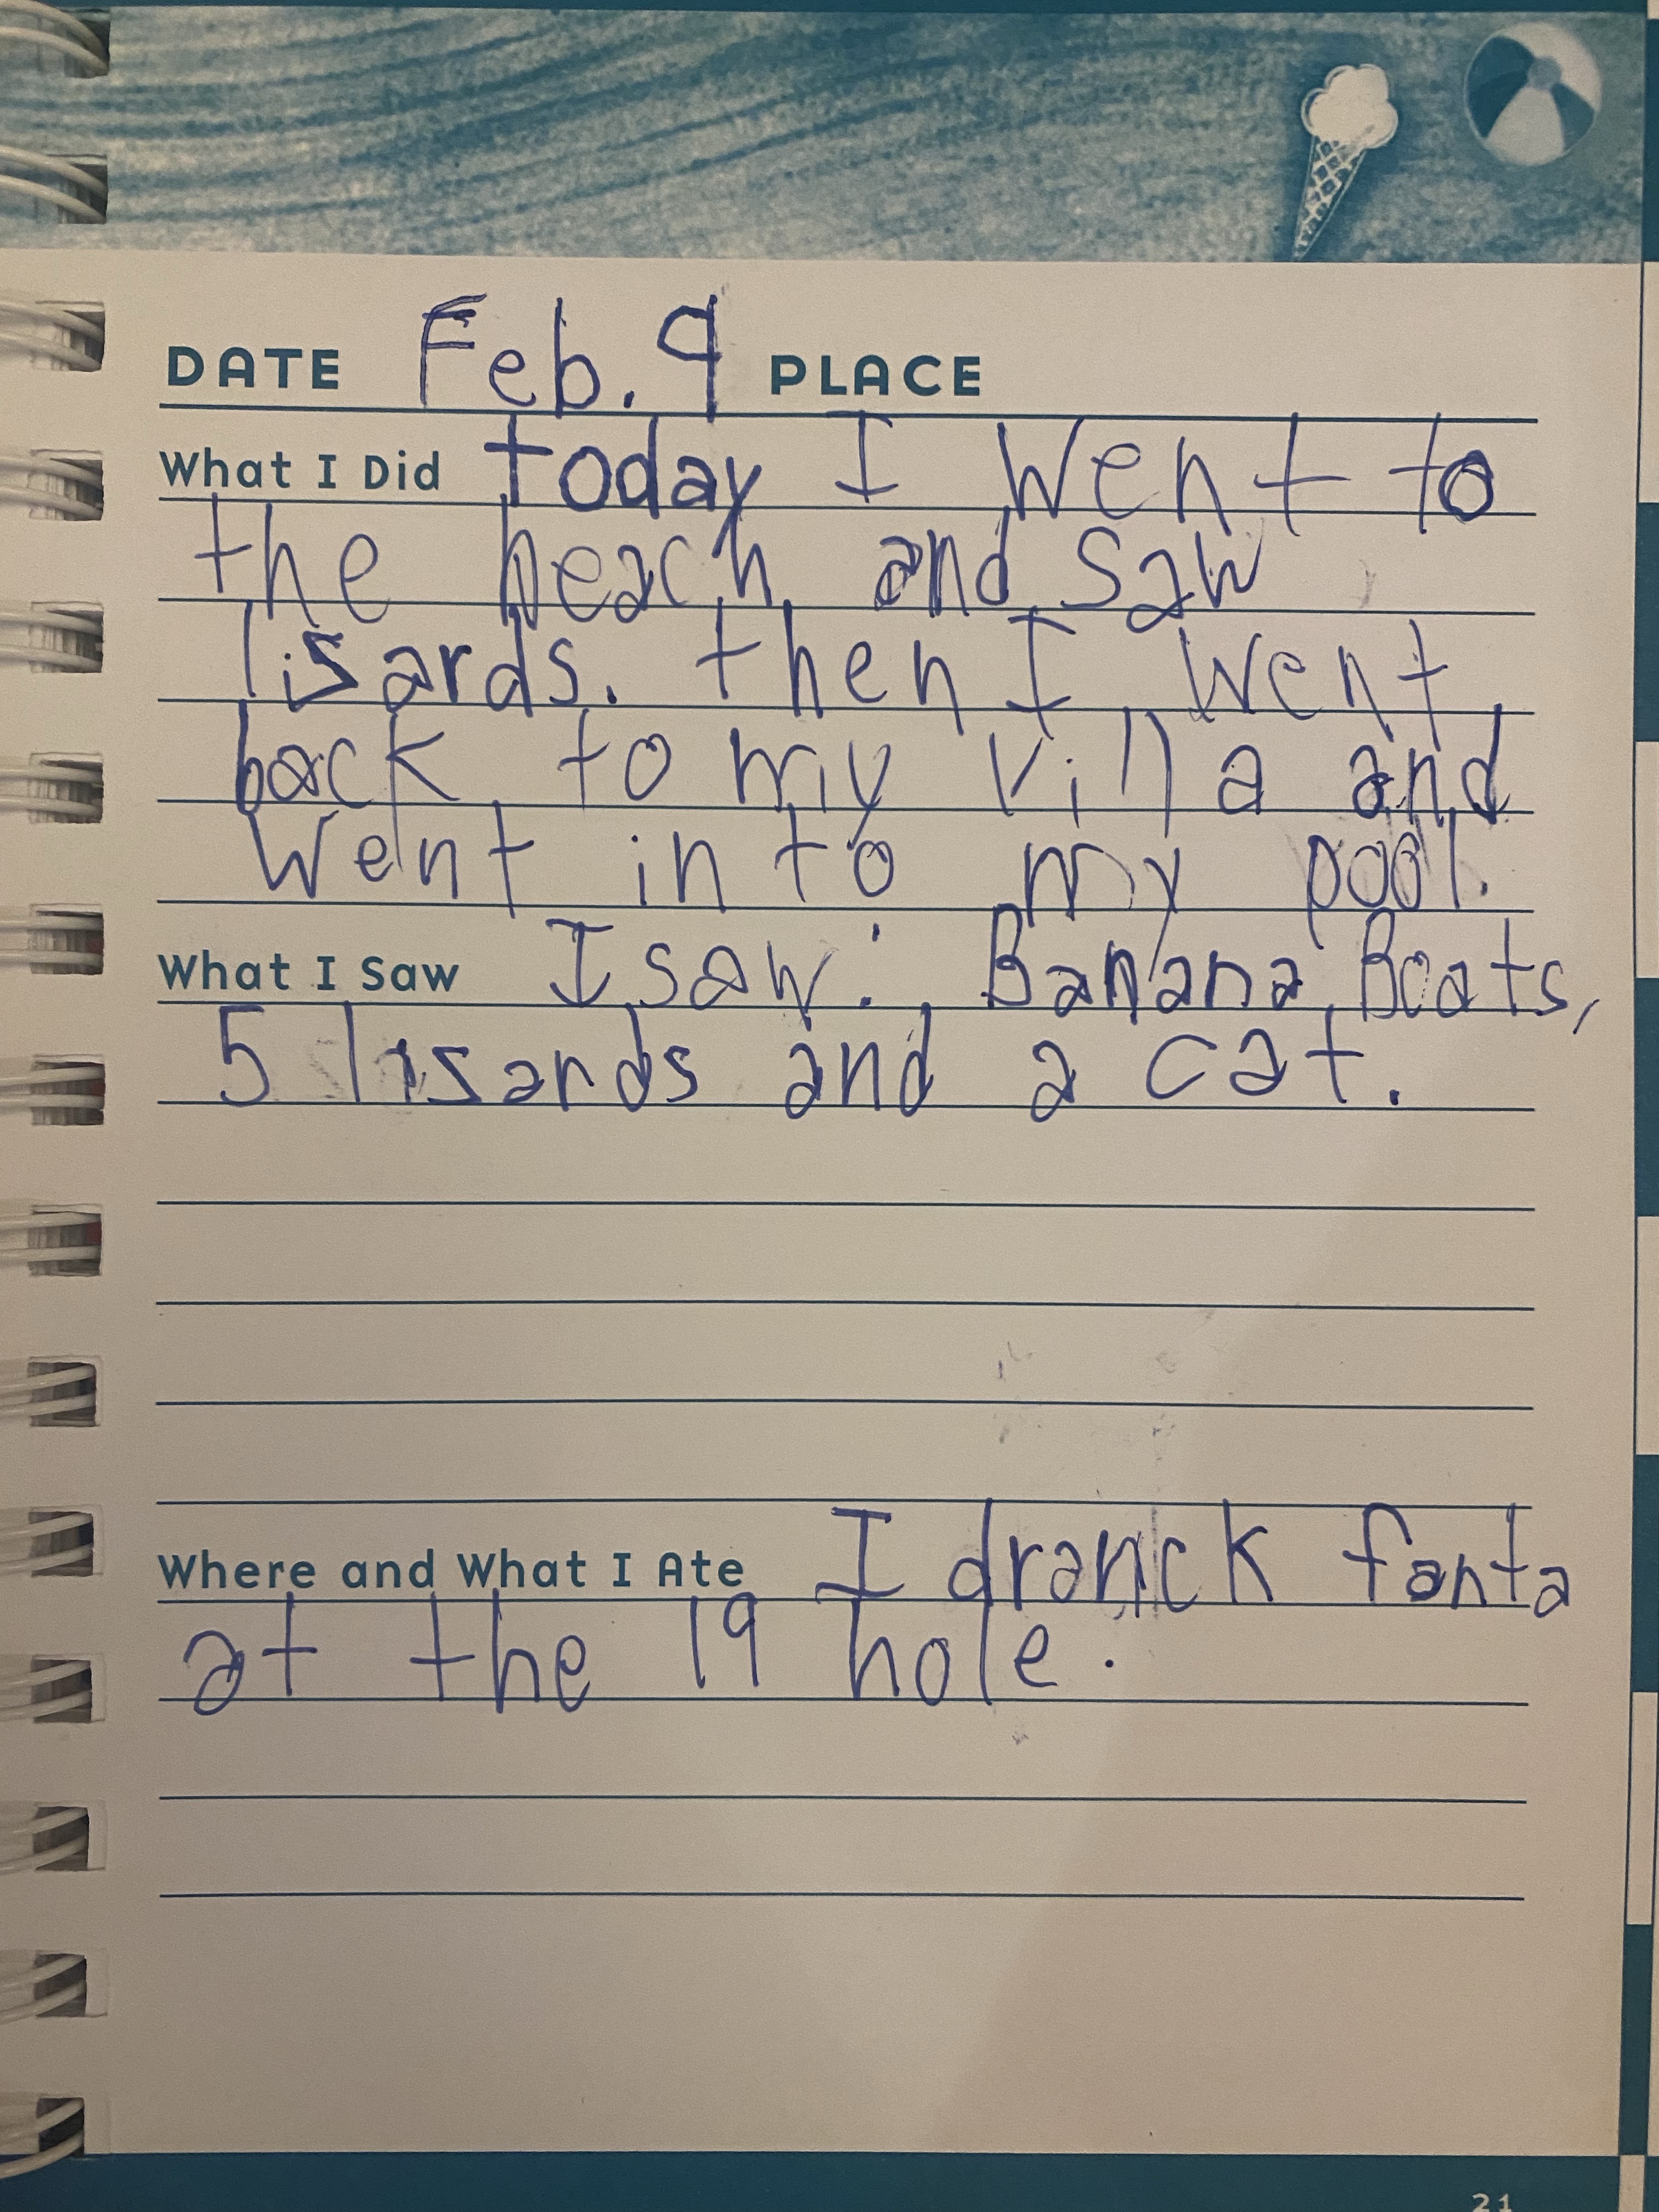 DATE Feb. 9 PLACE
What I Did today I Went to
the beach and saw
lisards. then I went
back to my villa and
Went in to my pool.
What I Saw I saw: Banana Boats,
5 lisards and a cat.
Where and What I Ate I dranck fanta
at the 19 hole.
21